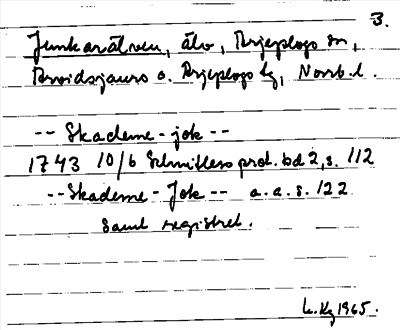 3.
Junkarälven, älv, Arjeplogs sn,
Arvidsjaurs o. Arjeplogs tg, Norrb. l.
-- Skademe - jok --
1743 10/6 Schnitlers prot. bd 2, s. 112
-- Skademe - Jok -- a. a. s. 122
samt registret.
L. Hg 1965.